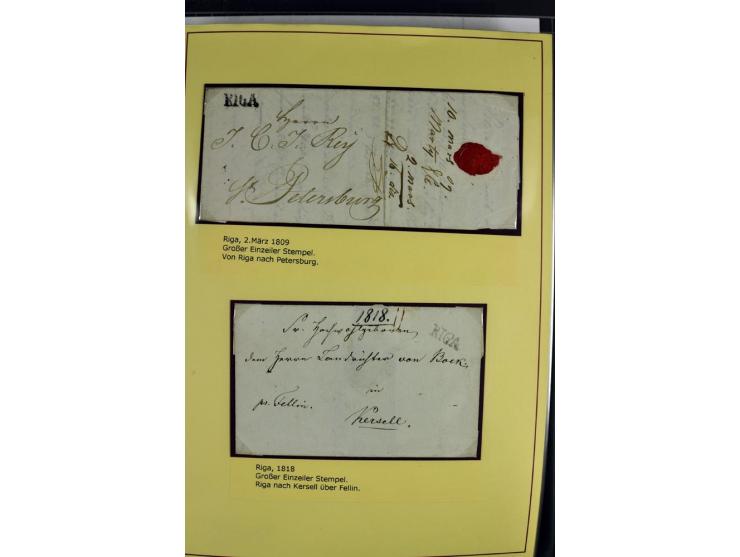 RIGA
Herrn
J. C. J. Rey
St. Petersburg
10. mars 09.
2. mars.
Riga, 2.März 1809
Großer Einzeiler Stempel.
Von Riga nach Petersburg.
1818.
RIGA
Sr. Hochwohlgeboren,
dem Herrn Landrichter von Bock,
in
pr. Fellin.
Kersell.
Riga, 1818
Großer Einzeiler Stempel.
Riga nach Kersell über Fellin.